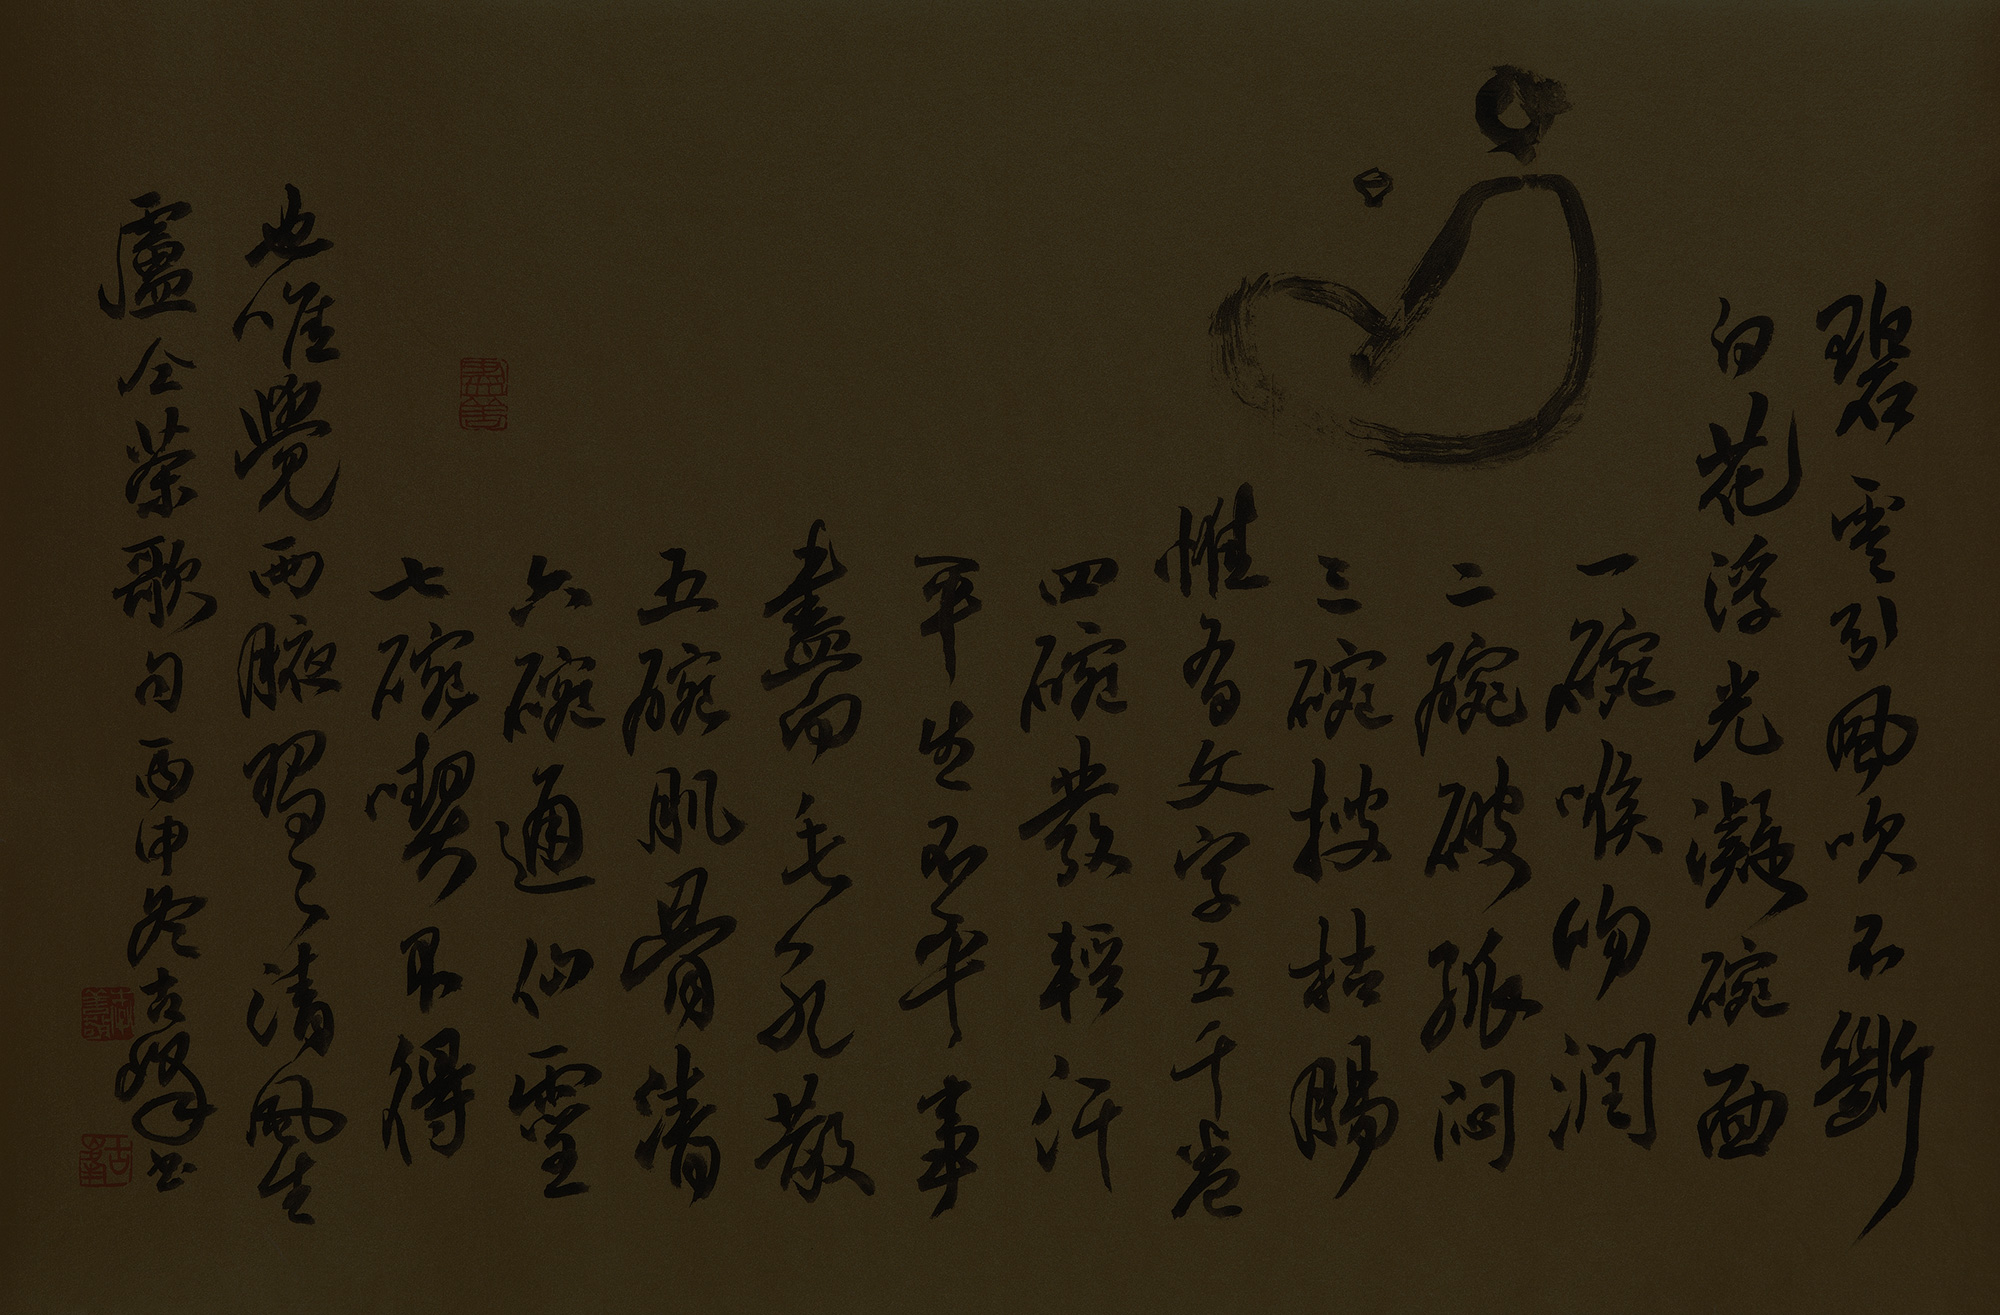 碧雲引風吹不斷
白花浮光凝碗面
一碗喉吻潤
二碗破孤悶
三碗搜枯腸
惟有文字五千卷
四碗發輕汗
平生不平事
盡向毛孔散
五碗肌骨清
六碗通仙靈
七碗喫不得
也唯覺兩腋習習清風生
盧仝茶歌句 丙申冬古峯书